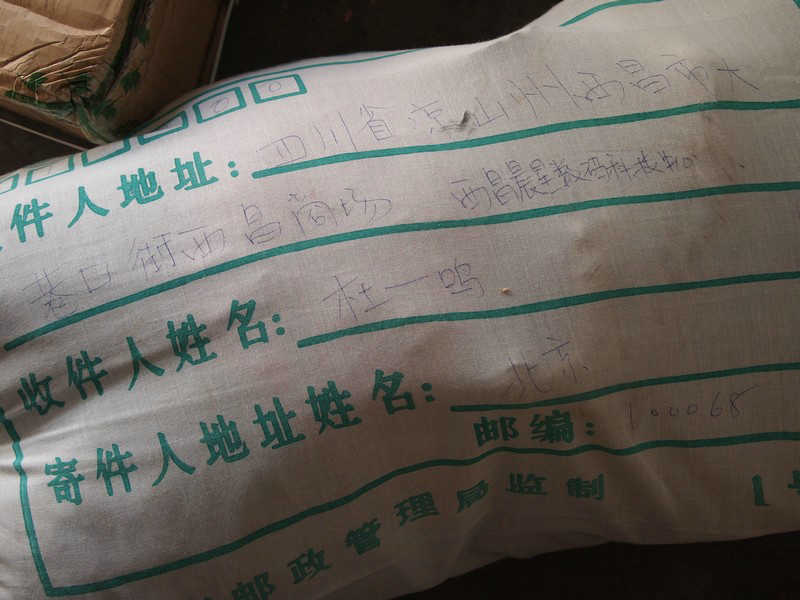 件人地址: 四川省凉山州西昌市大
巷口街西昌商场 西昌晨星数码科技
收件人姓名: 杜一鸣
寄件人地址姓名: 北京
邮编: 100068
邮政管理局监制